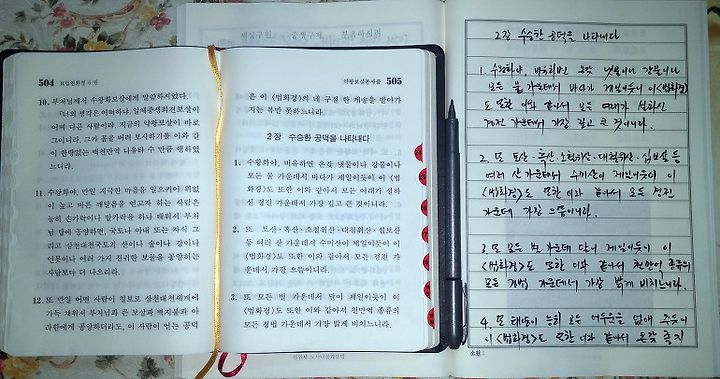 504 묘법연화경 6 권
10. 부처님께서 수왕화보살에게 말씀하시었다.
「너의 생각은 어떠하냐. 일체중생희견보살이
어찌 다른 사람이랴. 지금의 약왕보살이 바로
그이니라. 그가 몸을 버려 보시하기를 이와 같
이 한량없는 백천만억 나유타 수 만큼 행하였
느니라.
11. 수왕화야, 만일 지극한 마음을 일으키어 위없
이 높고 바른 깨달음을 얻고자 하는 사람은
능히 손가락이나 발가락을 하나 태워서 부처
님 탑에 공양하면, 국토나 아내 또는 자식 그
리고 삼천대천국토의 산이나 숲이나 강이나
연못이나 여러 가지 진귀한 보물을 공양하는
사람보다 더 나으리라.
12. 또 만일 어떤 사람이 칠보로 삼천대천세계에
가득 채워서 부처님과 큰 보살과 벽지불과 아
라한에게 공양하더라도, 이 사람이 얻는 공덕
약왕보살본사품 505
은 이 <법화경>의 네 구절 한 게송을 받아가
지는 복만 못하느니라.
2 장 수승한 공덕을 나타내다
1. 수왕화야, 비유하면 온갖 냇물이나 강물이나
모든 물 가운데서 바다가 제일이듯이 이 <법화
경>도 또한 이와 같아서 모든 여래가 설하
신 경전 가운데서 가장 깊고 큰 것이니라.
2. 또 토산·흑산·소철위산·대철위산·십보산
등 여러 산 가운데서 수미산이 제일이듯이 이
<법화경>도 또한 이와 같아서 모든 경전 가
운데서 가장 으뜸이니라.
3. 또 모든 별 가운데서 달이 제일이듯이 이
<법화경>도 또한 이와 같아서 천만억 종류의
모든 경법 가운데서 가장 밝게 비치느니라.
세상구원 중생구제
2장 수승한 공덕을 나타내다
1. 수왕화야, 비유하면 온갖 냇물이나 강물이나
모든 물 가운데서 바다가 제일이듯이 이 <법화경>
도 또한 이와 같아서 모든 여래가 설하신
경전 가운데서 가장 깊고 큰 것이니라.
2. 또 토산·흑산·소철위산·대철위산·십보산 등
여러 산 가운데서 수미산이 제일이듯이 이
<법화경>도 또한 이와 같아서 모든 경전
가운데 가장 으뜸이니라.
3. 또 모든 별 가운데 달이 제일이듯이 이
<법화경>도 또한 이와 같아서 천만억 종류의
모든 경법 가운데서 가장 밝게 비치느니라.
4. 또 태양이 능히 모든 어두움을 없애 주듯이
이 <법화경>도 또한 이와 같아서 온갖
소원 :